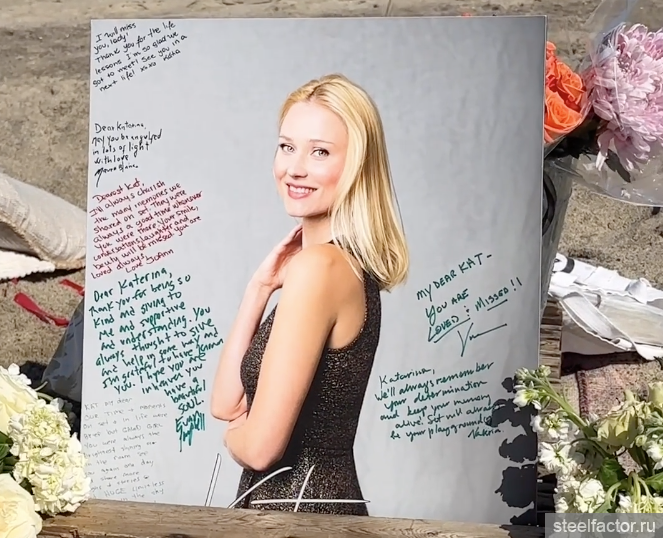 I will miss
you, lady!
Thank you for the life
lessons. I'm so glad we
got to meet! See you in a
next life! xoxo
Dear Katarina,
May you be engulfed
in lots of light
with love
Dearest Kat,
I'll always cherish
the many memories we
shared on set. They were
always a good time whenever
you were there. Your smile,
conversations, laughter and
beauty will be missed. You are
loved always.
Love JoAnn
Dear Katerina,
Thank you for being so
kind and giving to
me and supportive
and understanding. You
always thought to give
and help in some way and
I'm grateful to have known
you. I hope you are
in heaven you
beautiful
SOUL
KAT my dear
time
on set & in life were
You were always the
brightest
in the room
again one day
MY DEAR KAT-
YOU ARE
LOVED & MISSED!!
Katarina,
We'll always remember
your determination
and keep your memory
alive. Set will always
be your playground!
Valeria
steelfactor.ru